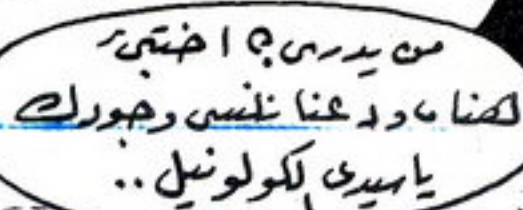 من يدرى؟ اختبىء
هنا ، ودعنا ننسى وجودك
ياسيدى الكولونيل ..